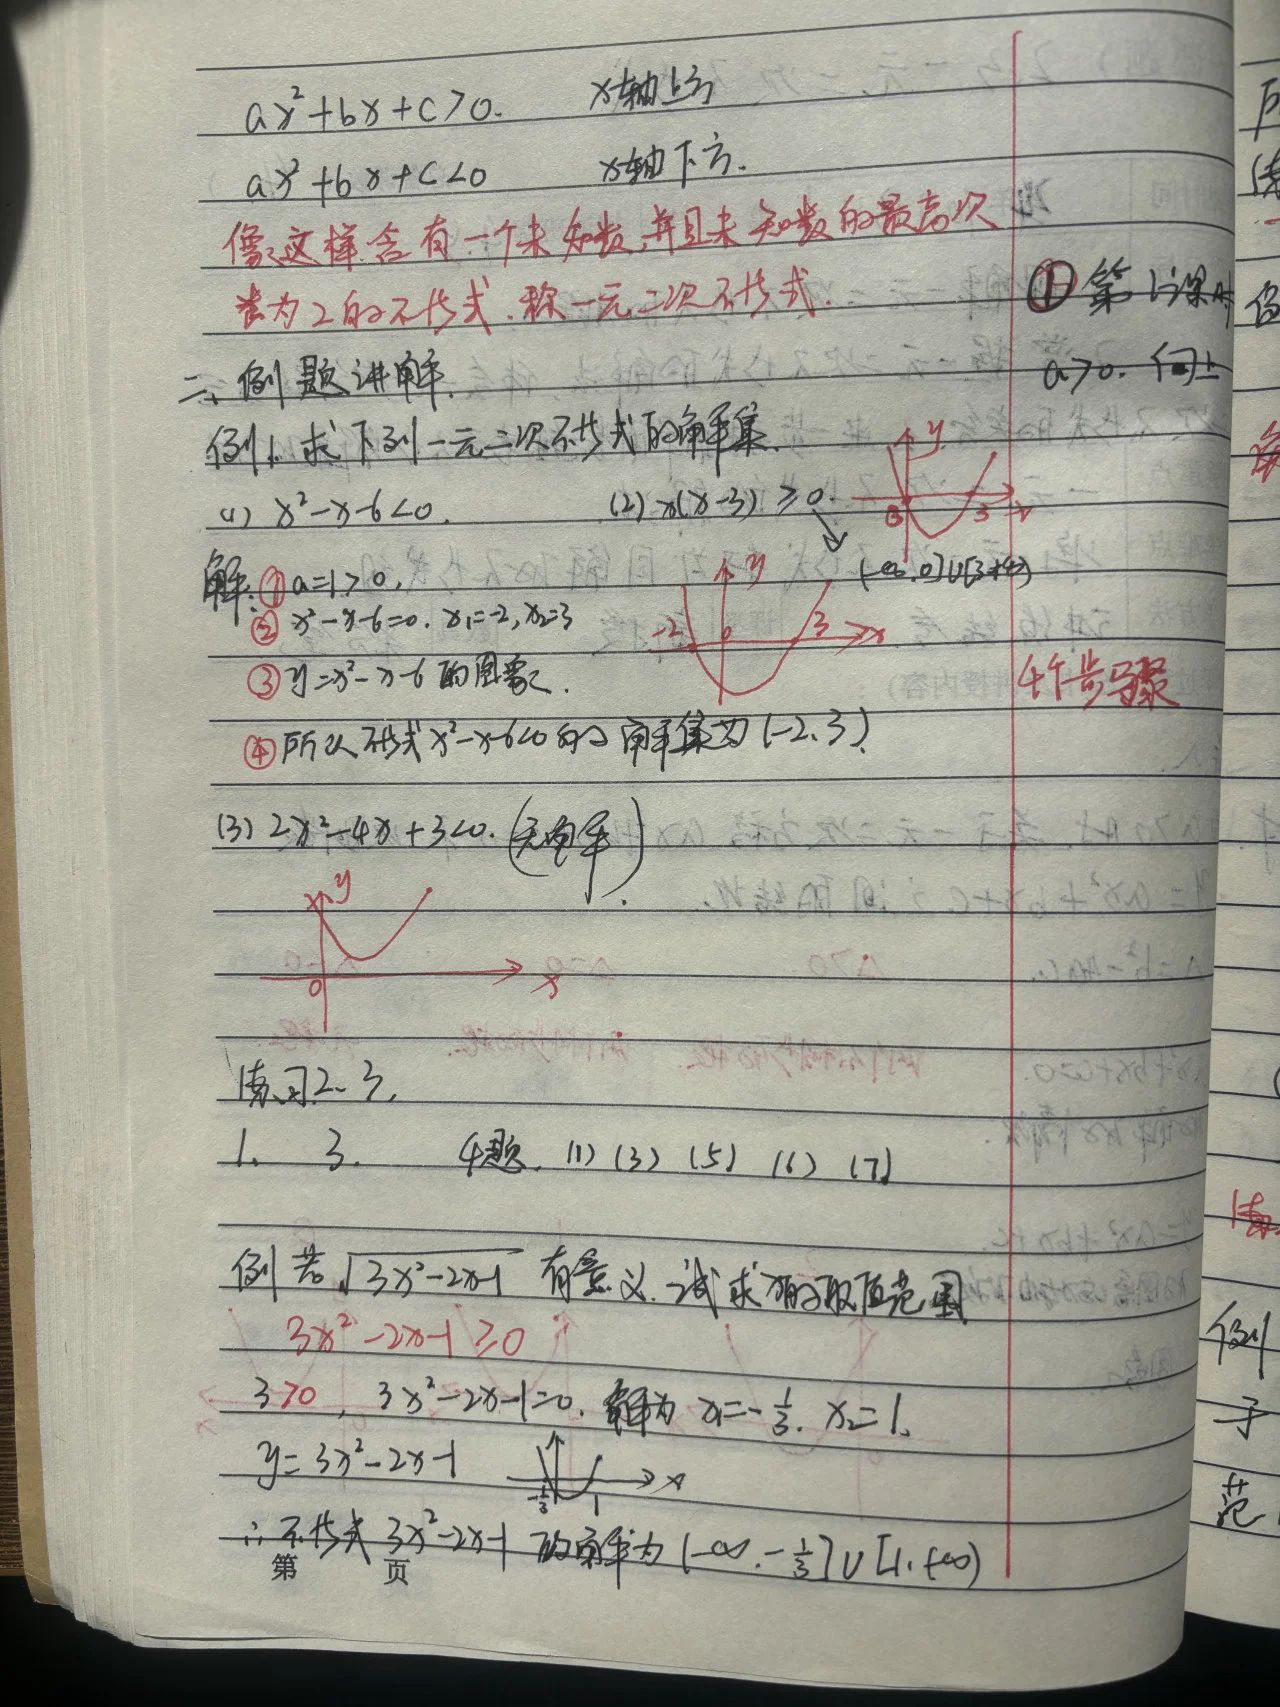 ax²+bx+c>0. x轴上方
ax²+bx+c<0 x轴下方.
像这样含有一个未知数,并且未知数的最高次
数为2的不等式.称一元二次不等式.
① 第1课时
a>0. 向上
二、例题讲解.
例1. 求下列一元二次不等式的解集.
(1) x²-x-6<0. (2) x(x-3)≥0.
y 0 3 x
(-∞,0]∪[3,+∞)
解: ① a=1>0,
② x²-x-6=0. x₁=-2, x₂=3
y -2 0 3 x
③ y=x²-x-6的图象.
4个步骤
④ 所以不等式x²-x-6<0的解集为(-2,3).
(3) 2x²-4x+3<0. (无解).
y 0 x
练习2.3.
1. 3. 4题. (1) (3) (5) (6) (7)
例 若√3x²-2x-1 有意义.试求x的取值范围
3x²-2x-1≥0
3>0, 3x²-2x-1=0. 解为 x₁=-1/3. x₂=1.
y=3x²-2x-1 -1/3 1 x
∴不等式 3x²-2x-1 的解为 (-∞.-1/3]∪[1.+∞)
第 页
例
于
范